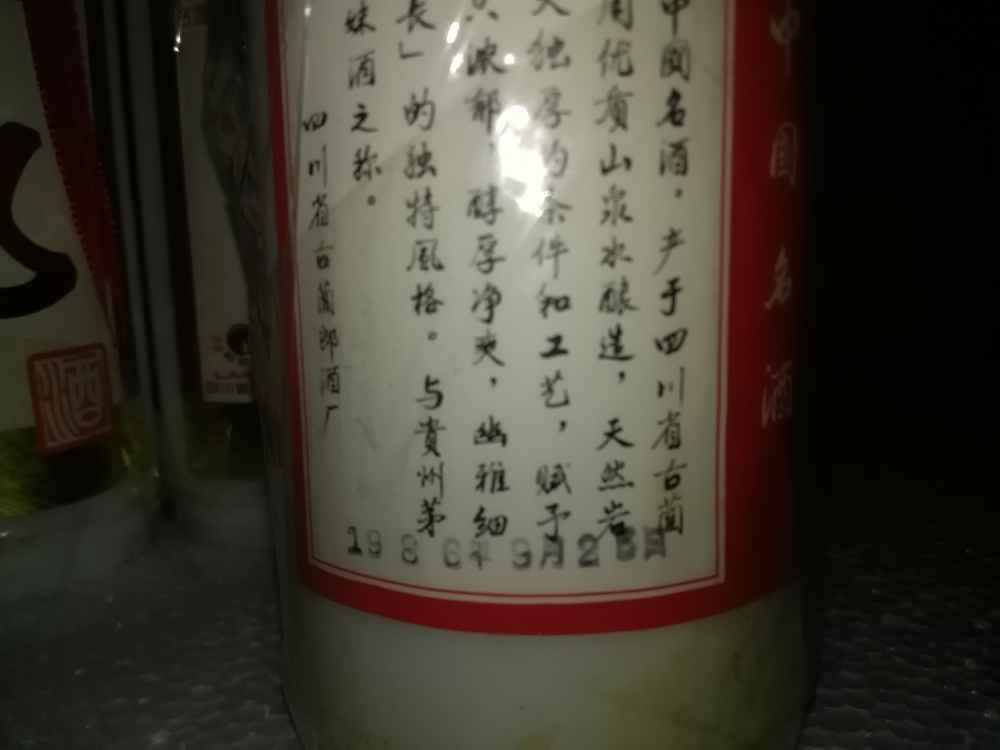 中国名酒
中国名酒。产于四川省古蔺
用优質山泉水酿造，天然岩
独厚的条件和工艺，赋予
浓郁，醇厚净爽，幽雅细
长」的独特風格。与貴州茅
妹酒之称。
四川省古蔺郎酒厂
1986年9月26日
酒